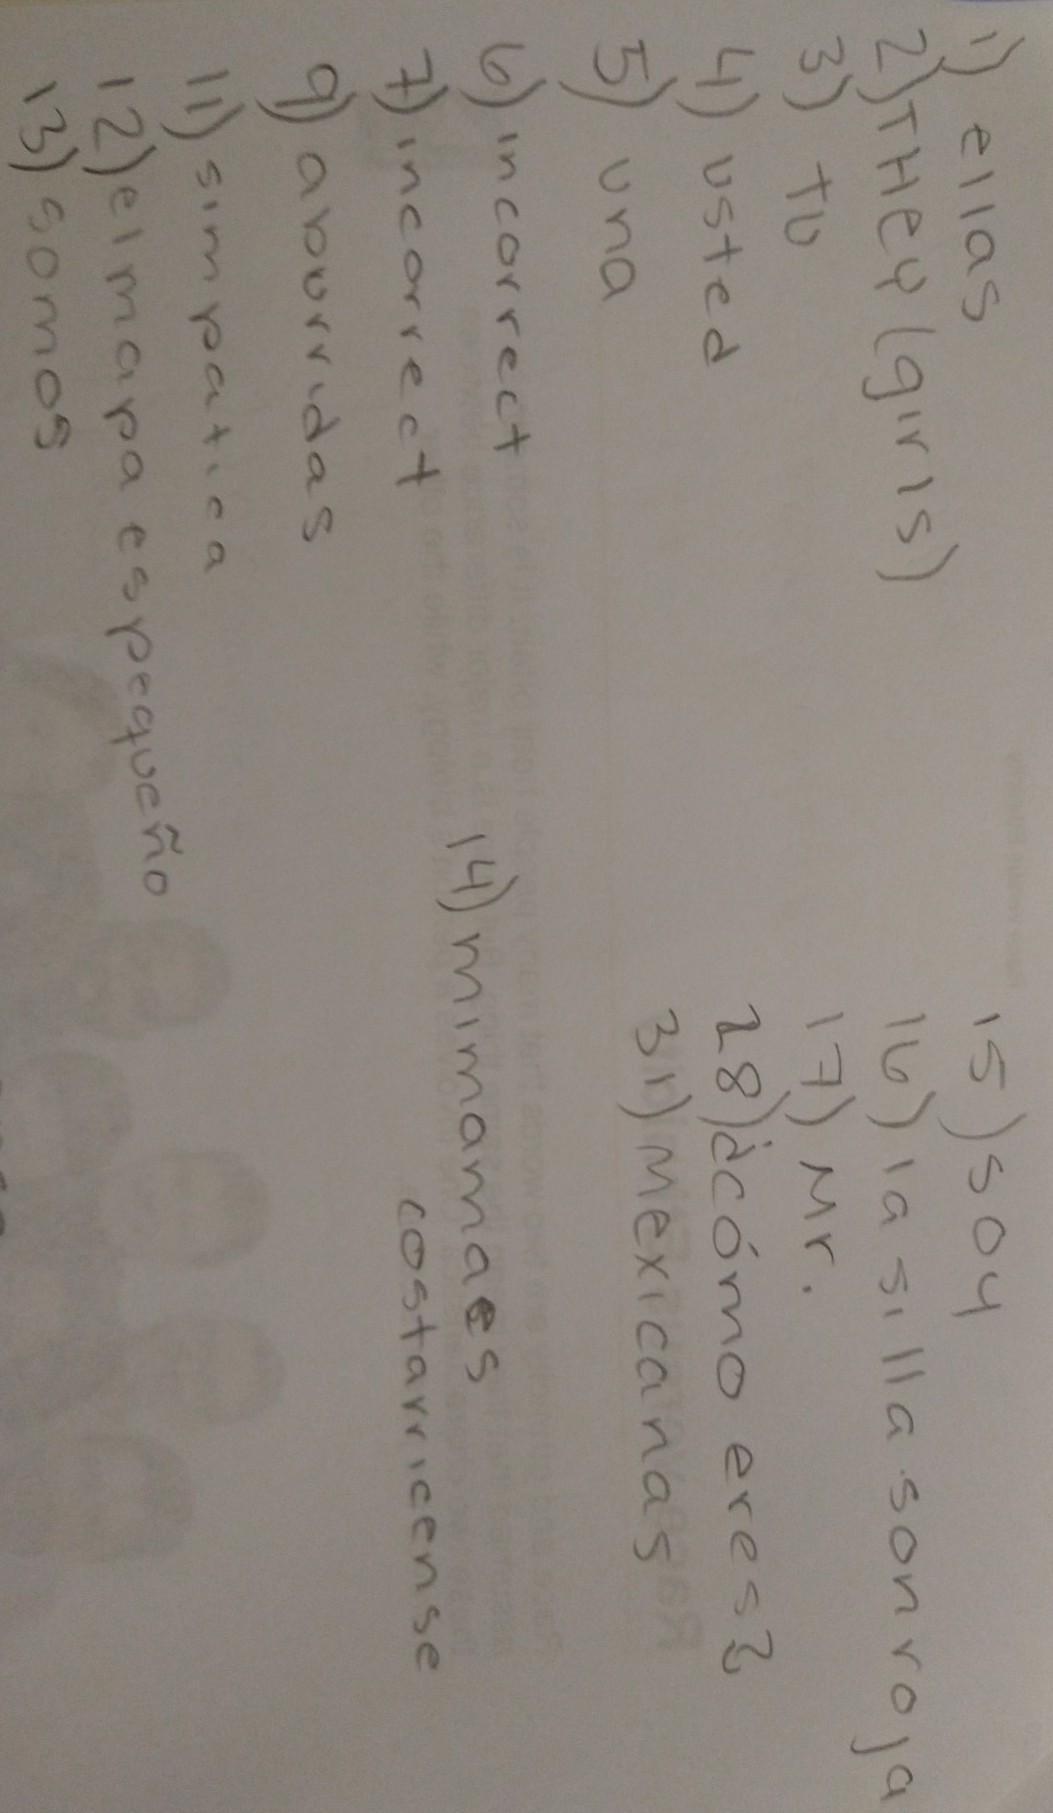 1) ellas
2) THEY (girls)
3) tu
4) usted
5) una
6) incorrect
7) incorrect
9) aburridas
11) simpatica
12) el mapa es pequeño
13) somos
14) mi mama es
costarricense
15) soy
16) la silla son roja
17) Mr.
28) ¿cómo eres?
31) Mexicanas